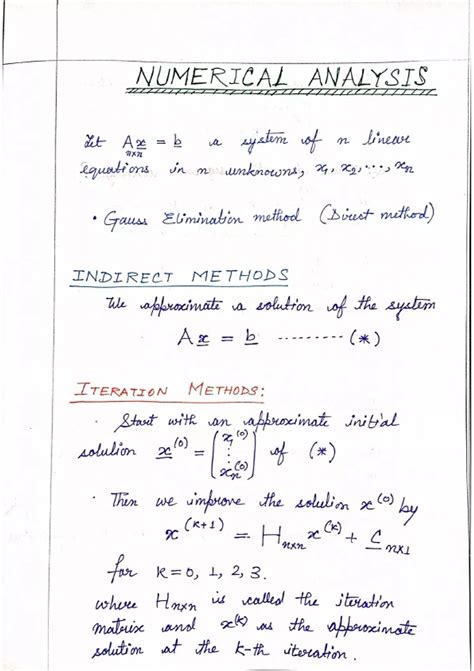 NUMERICAL ANALYSIS
Let Ax = b a system of n linear
n×n
equations in n unknowns, x₁, x₂, ..., xₙ
• Gauss Elimination method (Direct method)
INDIRECT METHODS
We approximate a solution of the system
Ax = b --------- (*)
ITERATION METHODS:
• Start with an approximate initial
solution x^(0) = (x₁^(0) ⋮ xₙ^(0)) of (*)
• Then we improve the solution x^(0) by
x^(k+1) = Hₙ×ₙ x^(k) + C ₙ×₁
for k=0, 1, 2, 3.
where Hₙ×ₙ is called the iteration
matrix and x^(k) as the approximate
solution at the k-th iteration.